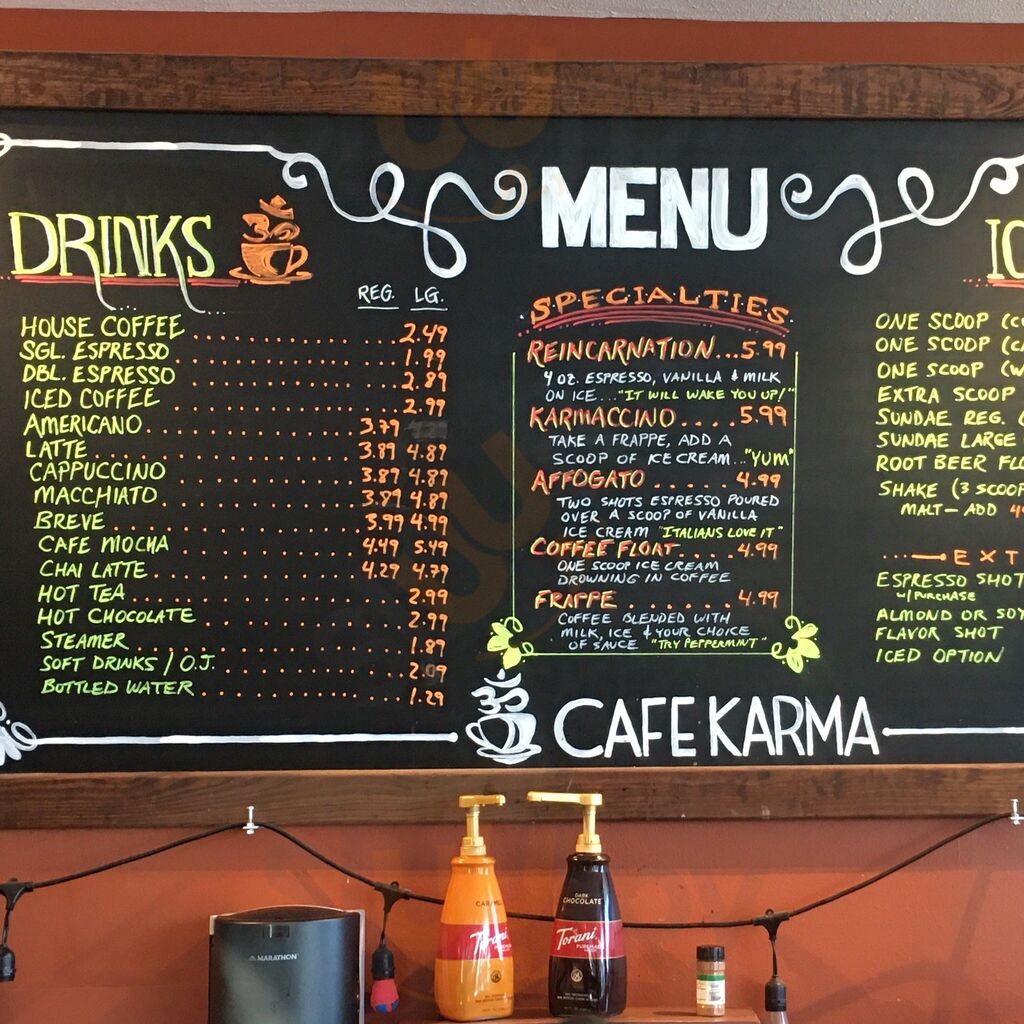 MENU
DRINKS
REG. LG.
HOUSE COFFEE 2.49
SGL. ESPRESSO 1.99
DBL. ESPRESSO 2.89
ICED COFFEE 2.99
AMERICANO 3.79
LATTE 3.89 4.89
CAPPUCCINO 3.89 4.89
MACCHIATO 3.89 4.89
BREVE 3.99 4.99
CAFE MOCHA 4.49 5.49
CHAI LATTE 4.29 4.79
HOT TEA 2.99
HOT CHOCOLATE 2.99
STEAMER 1.89
SOFT DRINKS / O.J. 2.09
BOTTLED WATER 1.29
SPECIALTIES
REINCARNATION...5.99
4 OZ. ESPRESSO, VANILLA & MILK
ON ICE..."IT WILL WAKE YOU UP!"
KARMACCINO....5.99
TAKE A FRAPPE, ADD A
SCOOP OF ICE CREAM..."YUM"
AFFOGATO.....4.99
TWO SHOTS ESPRESSO POURED
OVER A SCOOP OF VANILLA
ICE CREAM "ITALIANS LOVE IT"
COFFEE FLOAT....4.99
ONE SCOOP ICE CREAM
DROWNING IN COFFEE
FRAPPE.......4.99
COFFEE BLENDED WITH
MILK, ICE & YOUR CHOICE
OF SAUCE "TRY PEPPERMINT"
IC
ONE SCOOP (C
ONE SCOOP (C
ONE SCOOP (W
EXTRA SCOOP
SUNDAE REG. (
SUNDAE LARGE
ROOT BEER FLO
SHAKE (3 SCOOP
MALT - ADD
EXT
ESPRESSO SHOT
W/ PURCHASE
ALMOND OR SOY
FLAVOR SHOT
ICED OPTION
CAFE KARMA
MARATHON
CARAMEL
Torani
DARK
CHOCOLATE
Torani